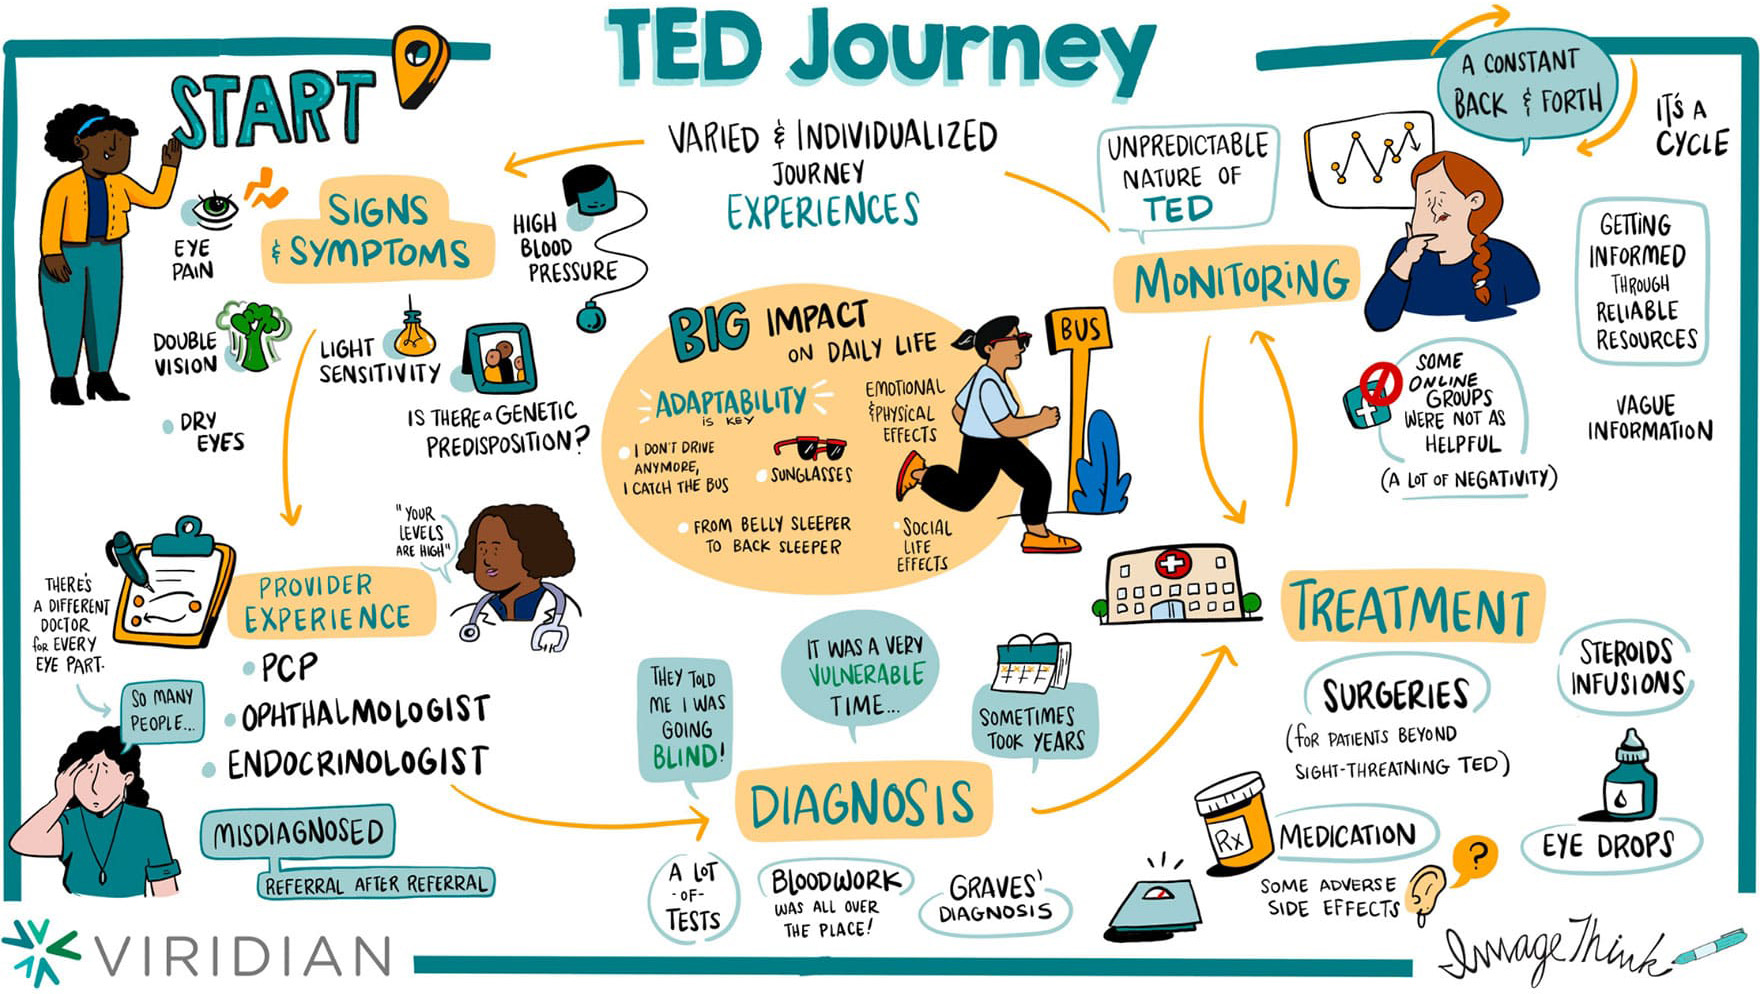 TED Journey
START
VARIED & INDIVIDUALIZED
JOURNEY
EXPERIENCES
SIGNS
& SYMPTOMS
EYE
PAIN
HIGH
BLOOD
PRESSURE
DOUBLE
VISION
LIGHT
SENSITIVITY
DRY
EYES
IS THERE a GENETIC
PREDISPOSITION?
BIG IMPACT
ON DAILY LIFE
ADAPTABILITY
IS KEY
I DON'T DRIVE
ANYMORE,
I CATCH THE BUS
SUNGLASSES
FROM BELLY SLEEPER
TO BACK SLEEPER
EMOTIONAL
& PHYSICAL
EFFECTS
SOCIAL
LIFE
EFFECTS
BUS
UNPREDICTABLE
NATURE OF
TED
MONITORING
A CONSTANT
BACK & FORTH
IT'S A
CYCLE
GETTING
INFORMED
THROUGH
RELIABLE
RESOURCES
SOME
ONLINE
GROUPS
WERE NOT AS
HELPFUL
(A LOT OF NEGATIVITY)
VAGUE
INFORMATION
"YOUR
LEVELS
ARE HIGH"
PROVIDER
EXPERIENCE
THERE'S
A DIFFERENT
DOCTOR
for EVERY
EYE PART.
SO MANY
PEOPLE...
PCP
OPHTHALMOLOGIST
ENDOCRINOLOGIST
MISDIAGNOSED
REFERRAL AFTER REFERRAL
THEY TOLD
ME I WAS
GOING
BLIND!
IT WAS A VERY
VULNERABLE
TIME...
SOMETIMES
TOOK YEARS
DIAGNOSIS
A LOT
-OF-
TESTS
BLOODWORK
WAS ALL OVER
THE PLACE!
GRAVES'
DIAGNOSIS
TREATMENT
SURGERIES
(for PATIENTS BEYOND
SIGHT-THREATNING TED)
STEROIDS
INFUSIONS
Rx
MEDICATION
SOME ADVERSE
SIDE EFFECTS
?
EYE DROPS
VIRIDIAN
ImageThink